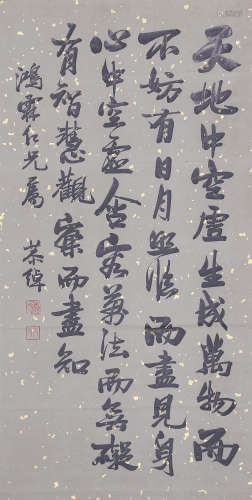 天地中空虛生成萬物而
不妨有日月照臨而盡見身
心中空虛含容萬法而無礙
有智慧觀察而盡知
鴻霖仁兄屬 棨緯